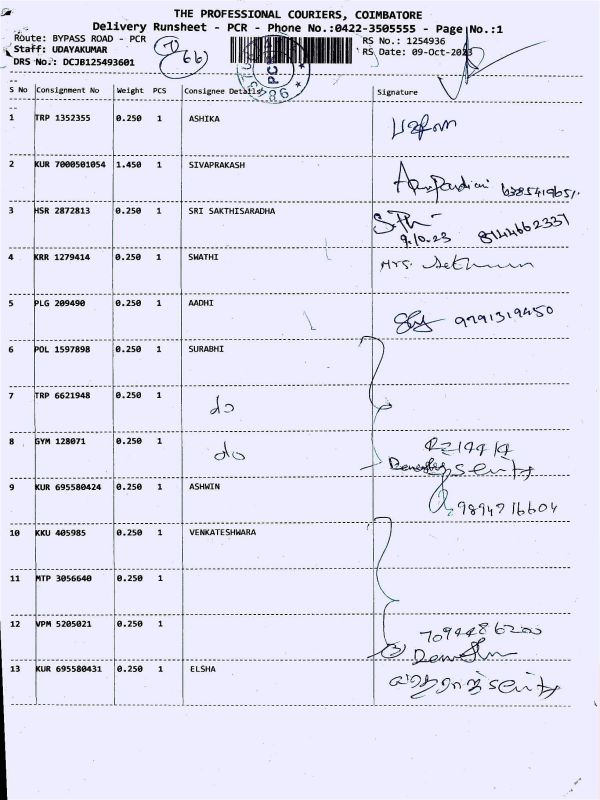 THE PROFESSIONAL COURIERS, COIMBATORE
Delivery Runsheet - PCR - Phone No.:0422-3505555 - Page No.:1
Route: BYPASS ROAD - PCR
RS No.: 1254936
Staff: UDAYAKUMAR
RS Date: 09-Oct-2023
DRS No.: DCJB125493601
66
S No Consignment No Weight PCS Consignee Details Signature
1 TRP 1352355 0.250 1 ASHIKA
2 KUR 7000501054 1.450 1 SIVAPRAKASH
6385419651
3 HSR 2872813 0.250 1 SRI SAKTHISARADHA
9.10.23 8144662337
4 KRR 1279414 0.250 1 SWATHI Mrs.
5 PLG 209490 0.250 1 AADHI
9791319450
6 POL 1597898 0.250 1 SURABHI
7 TRP 6621948 0.250 1 do
8 GYM 128071 0.250 1 do
9 KUR 695580424 0.250 1 ASHWIN
9894716604
10 KKU 405985 0.250 1 VENKATESHWARA
11 MTP 3056640 0.250 1
12 VPM 5205021 0.250 1
7094486200
13 KUR 695580431 0.250 1 ELSHA